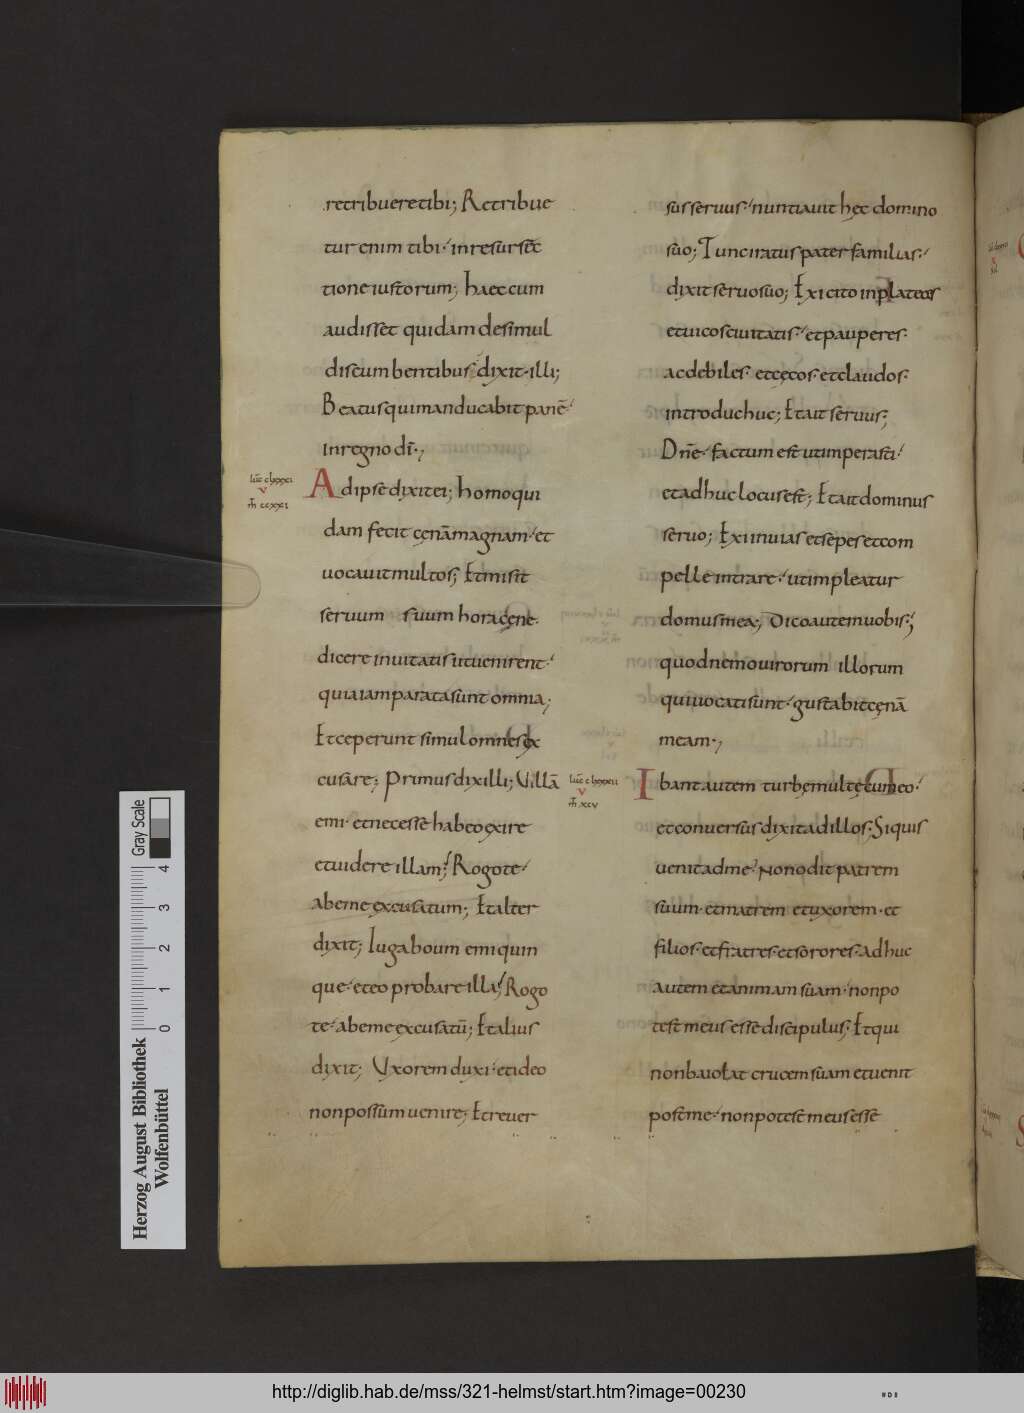 retribueretibi; Retribue
tur enim tibi· inresurrec̄
tioneiustorum; haeccum
audisset quidam desimul
discumbentibus· dixit·illi;
Beatusquimanducabit panē·
inregno dī·,
luc̄ clxxxi
v
m̄ ccxxi
Adipsedixitei; homoqui
dam fecit cęnāmagnam· et
uocauitmultos; Etmisit
seruum suum horacęne·
dicere inuitatisutuenirent·
quiaiamparatasunt omnia;
Etceperunt simul omnesex
cusare; Primusdixilli; Villā
emi· etnecessē habeoexire
etuidere illam; Rogote·
abemeexcusatum; Etalter
dixit; Iugaboum emiquin
que· eteo probare illa; Rogo
te· abemeexcusatū; Etalius
dixit; Vxorem duxi· etideo
nonpossum uenire; Etreuer
susseruus· nuntiauit hęc domino
suo; Tunciratuspaterfamilias·
dixitseruosuo; Exicito inplateas
etuicosciuitatis· etpauperes·
acdebiles· etcęcos·etclaudos·
introduchuc; Etait seruus;
Dn̄e· factum est utimperasti·
etadhuclocusest; Etaitdominus
seruo; Exiinuias etsepesetcom
pelle intrare· utimpleatur
domusmea; Dicoautemuobis;
quodnemouirorum illorum
quiuocatisunt· gustabitcęnā
meam·,
luc̄ clxxxii
v
m̄ xcv
Ibantautem turbęmultęcumeo·
etconuersusdixitadillos; Siquis
uenitadme· Nonodit patrem
suum· etmatrem etuxorem·et
filios·etfratres·etsorores·adhuc
autem etanimam suam· nonpo
test meus esse discipulus; Etqui
nonbaiolat crucem suam etuenit
postme· nonpotest meusesse
Herzog August Bibliothek
Wolfenbüttel
0 1 2 3 4
Gray Scale
http://diglib.hab.de/mss/321-helmst/start.htm?image=00230